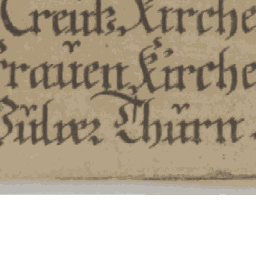 Creutz Kirche
Frauen Kirche
Pulver Thürn.